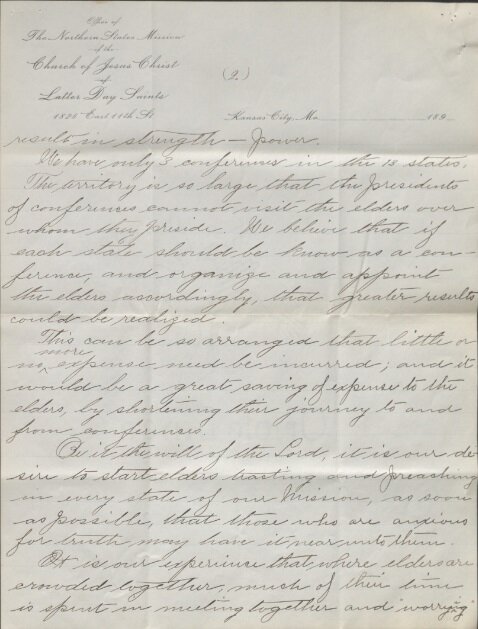 Office of
The Northern States Mission
of the
Church of Jesus Christ
of
Latter Day Saints
1825 East 11th St.
(2.)
Kansas City, Mo 189
result in strength — power.
We have only 3 conferences in the 13 states.
The territory is so large that the Presidents
of conferences cannot visit the elders over
whom they preside. We believe that if
each state should be know as a con-
ference, and organize and appoint
the elders accordingly, that greater results
could be realized.
This can be so arranged that little or
no more expense need be incurred; and it
would be a great saving of expense to the
elders, by shortening their journey to and
from conferences.
Be it the will of the Lord, it is our de-
sire to start elders tracting and preaching
in every state of our Mission, as soon
as possible, that those who are anxious
for truth may have it near unto them.
It is our experience that where elders are
crowded together, much of their time
is spent in meeting together and "worrying"